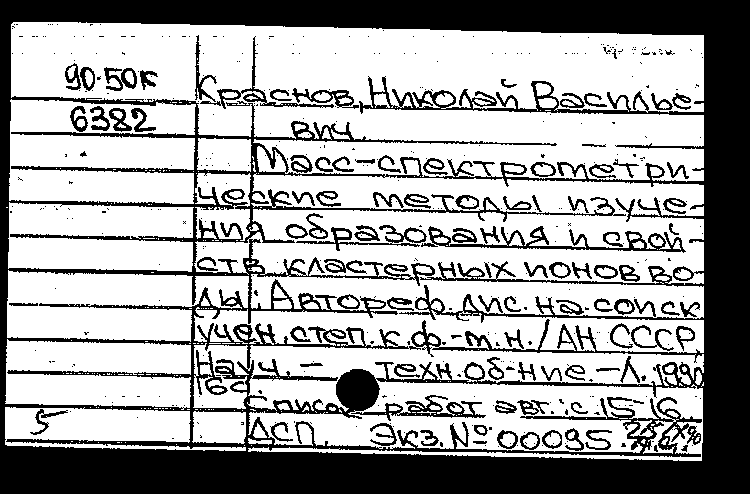 90-50к
Краснов, Николай Василье-
6382
вич.
Масс-спектрометри-
ческие методы изуче-
ния образования и свой-
ств кластерных ионов во-
ды: Автореф. дис. на соиск
учен. степ. к.ф.-м.н. / АН СССР,
Науч. - техн. об-ние. - Л., 1990
16с
Список работ авт.: с. 15-16.
5
ДСП. Экз. № 00095.